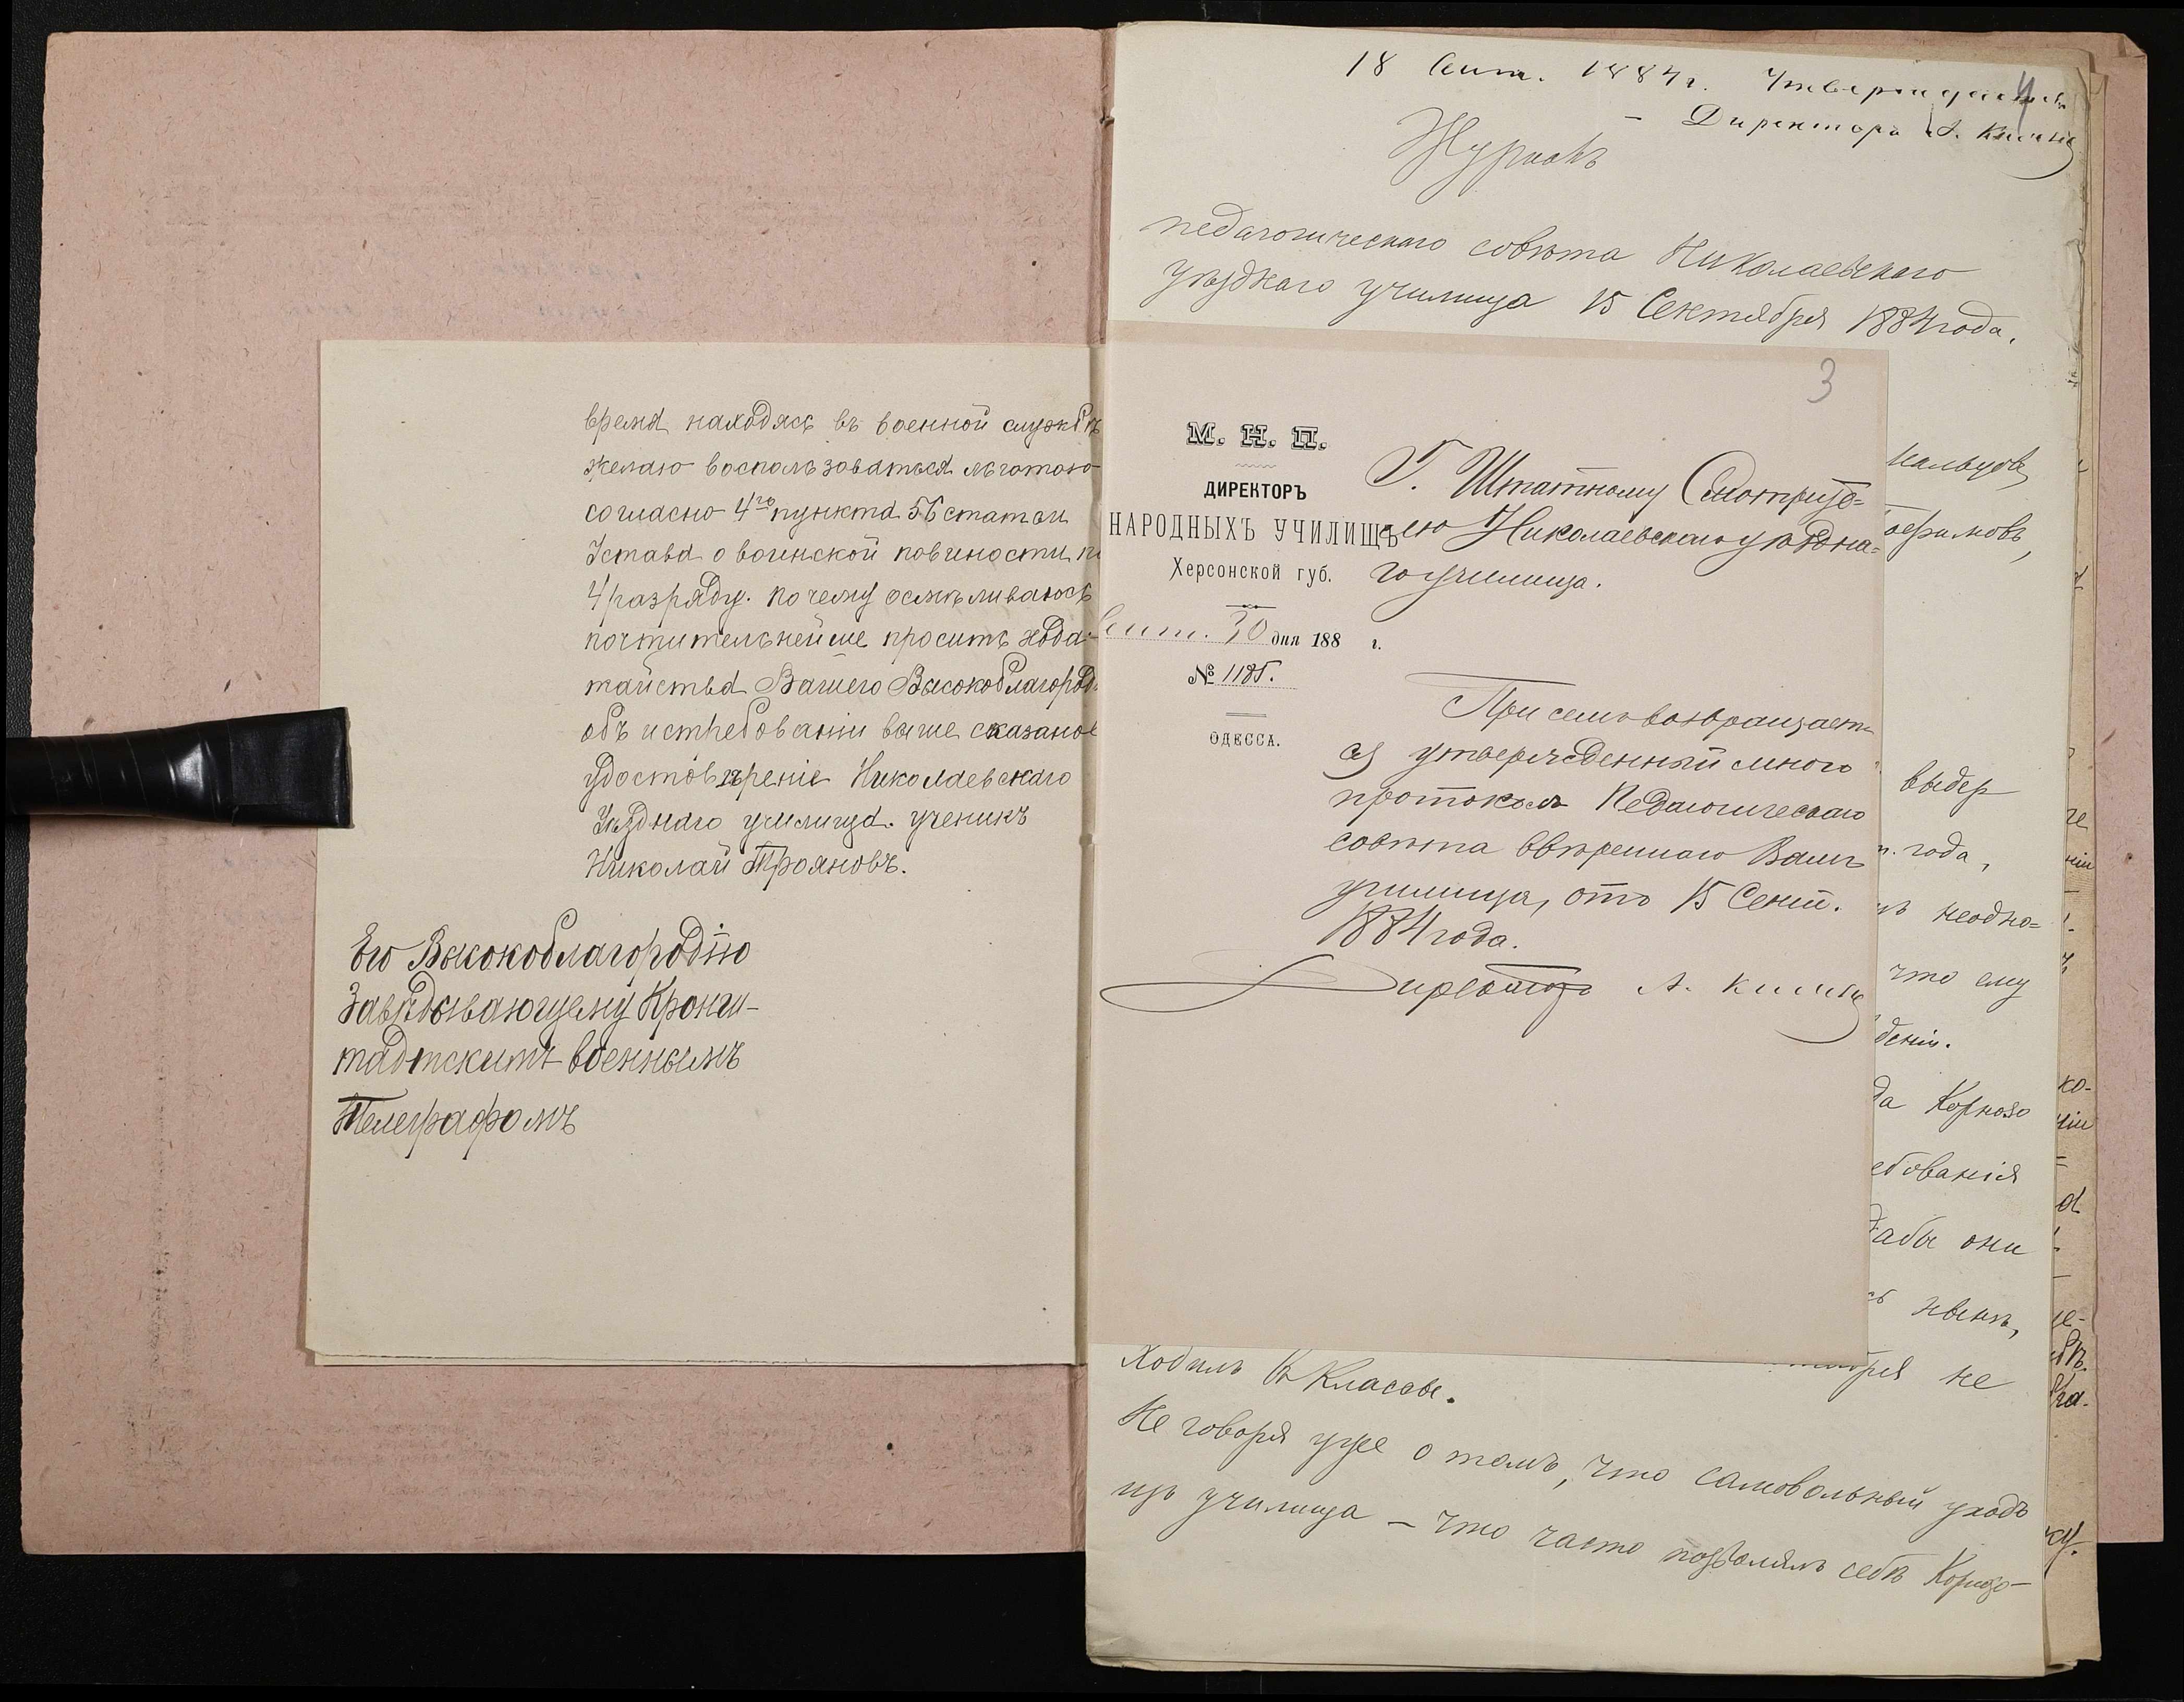 время находясь въ военной службѣ
желаю воспользоваться льготою
согласно 4го пункта 56 статьи
Устава о воинской повиности
4 разряду. почему осмѣливаюсь
почтительнейше просить хода-
тайства Вашего Высокоблагород
объ истребовании выше сказаное
удостовѣреніе Николаевскаго
Уѣзднаго училища. ученикъ
Николай Трояновъ.
Его Высокоблагородію
Завѣдывающему Кронш-
тадтскимъ военнымъ
Телеграфомъ
18 Сент. 1884 г. Утверждается
4
- Директоръ А.
Журналъ
педагогическаго совѣта Николаевскаго
уѣзднаго училища 15 Сентября 1884 года.
3
М. Н. П.
ДИРЕКТОРЪ
НАРОДНЫХЪ УЧИЛИЩЪ
Херсонской губ.
Сент. 30 дня 188 г.
№ 1185.
ОДЕССА.
Г. Штатному Смотрите-
лю Николаевскаго уѣздна-
го училища.
При семъ возвращает-
ся утвержденный мною
протоколъ Педагогическаго
совѣта ввѣреннаго Вамъ
училища, отъ 15 Сент.
1884 года.
Директоръ А.
выдер
года,
неодно=
что ему
денія.
да Корнозо
ебованія
дабы они
не
Ходилъ въ Классы.
Не говоря уже о томъ, что самовольный уходъ
изъ училища – что часто позволялъ себѣ Корнозо-